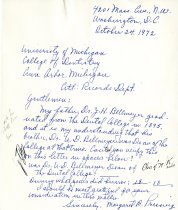 4201 Mass. Ave., N.W.
Washington, D.C.
October 24, 1972
University of Michigan
College of Dentistry
Ann Arbor, Michigan
Att: Records Dept.
Gentlemen:
My father, Dr. J. H. Bellmeyer grad-
uated from the Dental College 1895,
and it is my understanding that his
father, Dr. J. D. Bellmeyer was Dean of the
College at that time. Could you verify this
on this letter in space below?
Was Dr. J. D. Bellmeyer Dean of
the Dental College?
During what dates did
I should be most grateful for your
immediate reply
Sincerely, Margaret B.